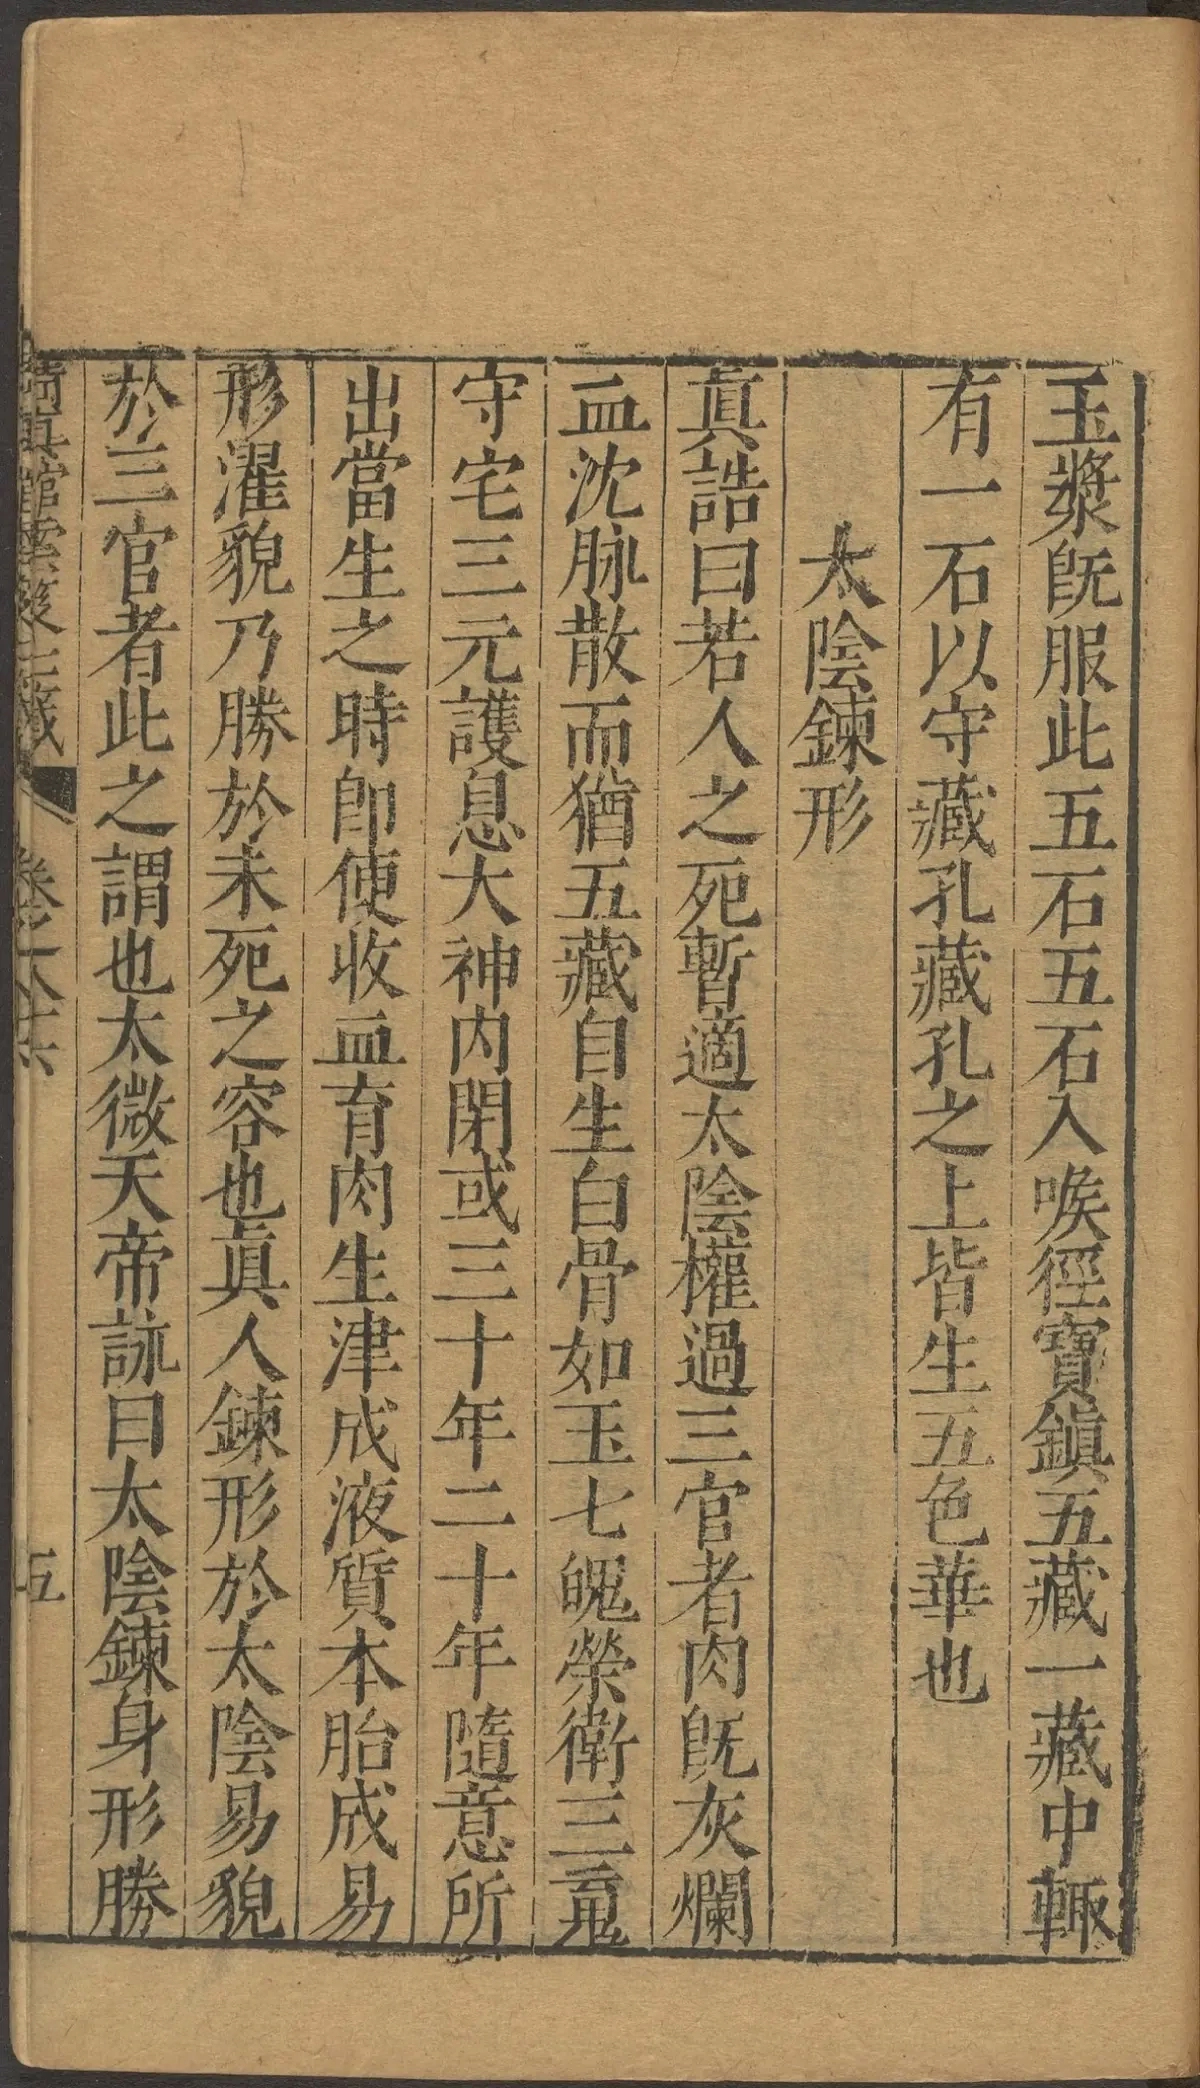 玉漿旣服此五石五石入喉徑寶鎭五藏一藏中輙
有一石以守藏孔藏孔之上皆生五色華也
太陰鍊形
眞誥曰若人之死暫適太陰權過三官者肉旣灰爛
血沈脉散而猶五藏自生白骨如玉七魄榮衛三䰟
守宅三元護息大神内閑或三十年二十年隨意所
出當生之時卽使收血育肉生津成液質本胎成易
形濯貌乃勝於未死之容也眞人鍊形於太陰易貌
於三官者此之謂也太微天帝詠曰太陰鍊身形勝
眞館雲笈七籖
五